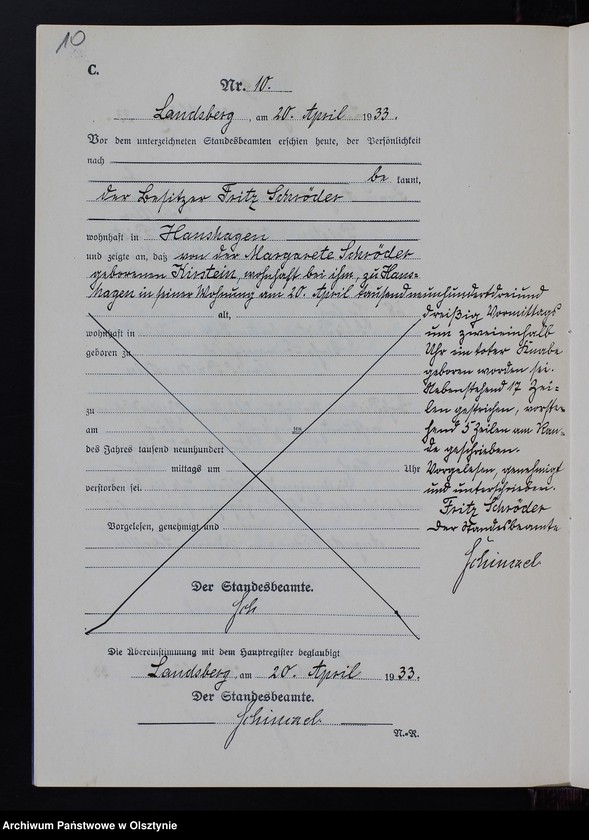 10
C.
Nr. 10.
Landsberg, am 20. April 1933.
Vor dem unterzeichneten Standesbeamten erschien heute, der Persönlichkeit
nach
be kannt,
der Besitzer Fritz Schröder
wohnhaft in Hanshagen
und zeigte an, daß von der Margarete Schröder
geborenen Kirstein, wohnhaft bei ihm, zu Hans-
hagen in seiner Wohnung am 20. April tausendneunhundertdreiund
dreißig Vormittags
um zweieinhalb
Uhr ein toter Knabe
geboren worden sei.
Nebenstehend 17 Zei-
len gestrichen, vorste-
hend 5 Zeilen am Ran-
de geschrieben.
Vorgelesen, genehmigt
und unterschrieben.
Fritz Schröder
Der Standesbeamte
Schimael
alt,
wohnhaft in
geboren zu
zu
am ten
des Jahres tausend neunhundert
mittags um Uhr
verstorben sei.
Vorgelesen, genehmigt und
Der Standesbeamte.
Sch
Die Übereinstimmung mit dem Hauptregister beglaubigt
Landsberg, am 20. April 1933.
Der Standesbeamte.
Schimael
N.-R.
Archiwum Państwowe w Olsztynie